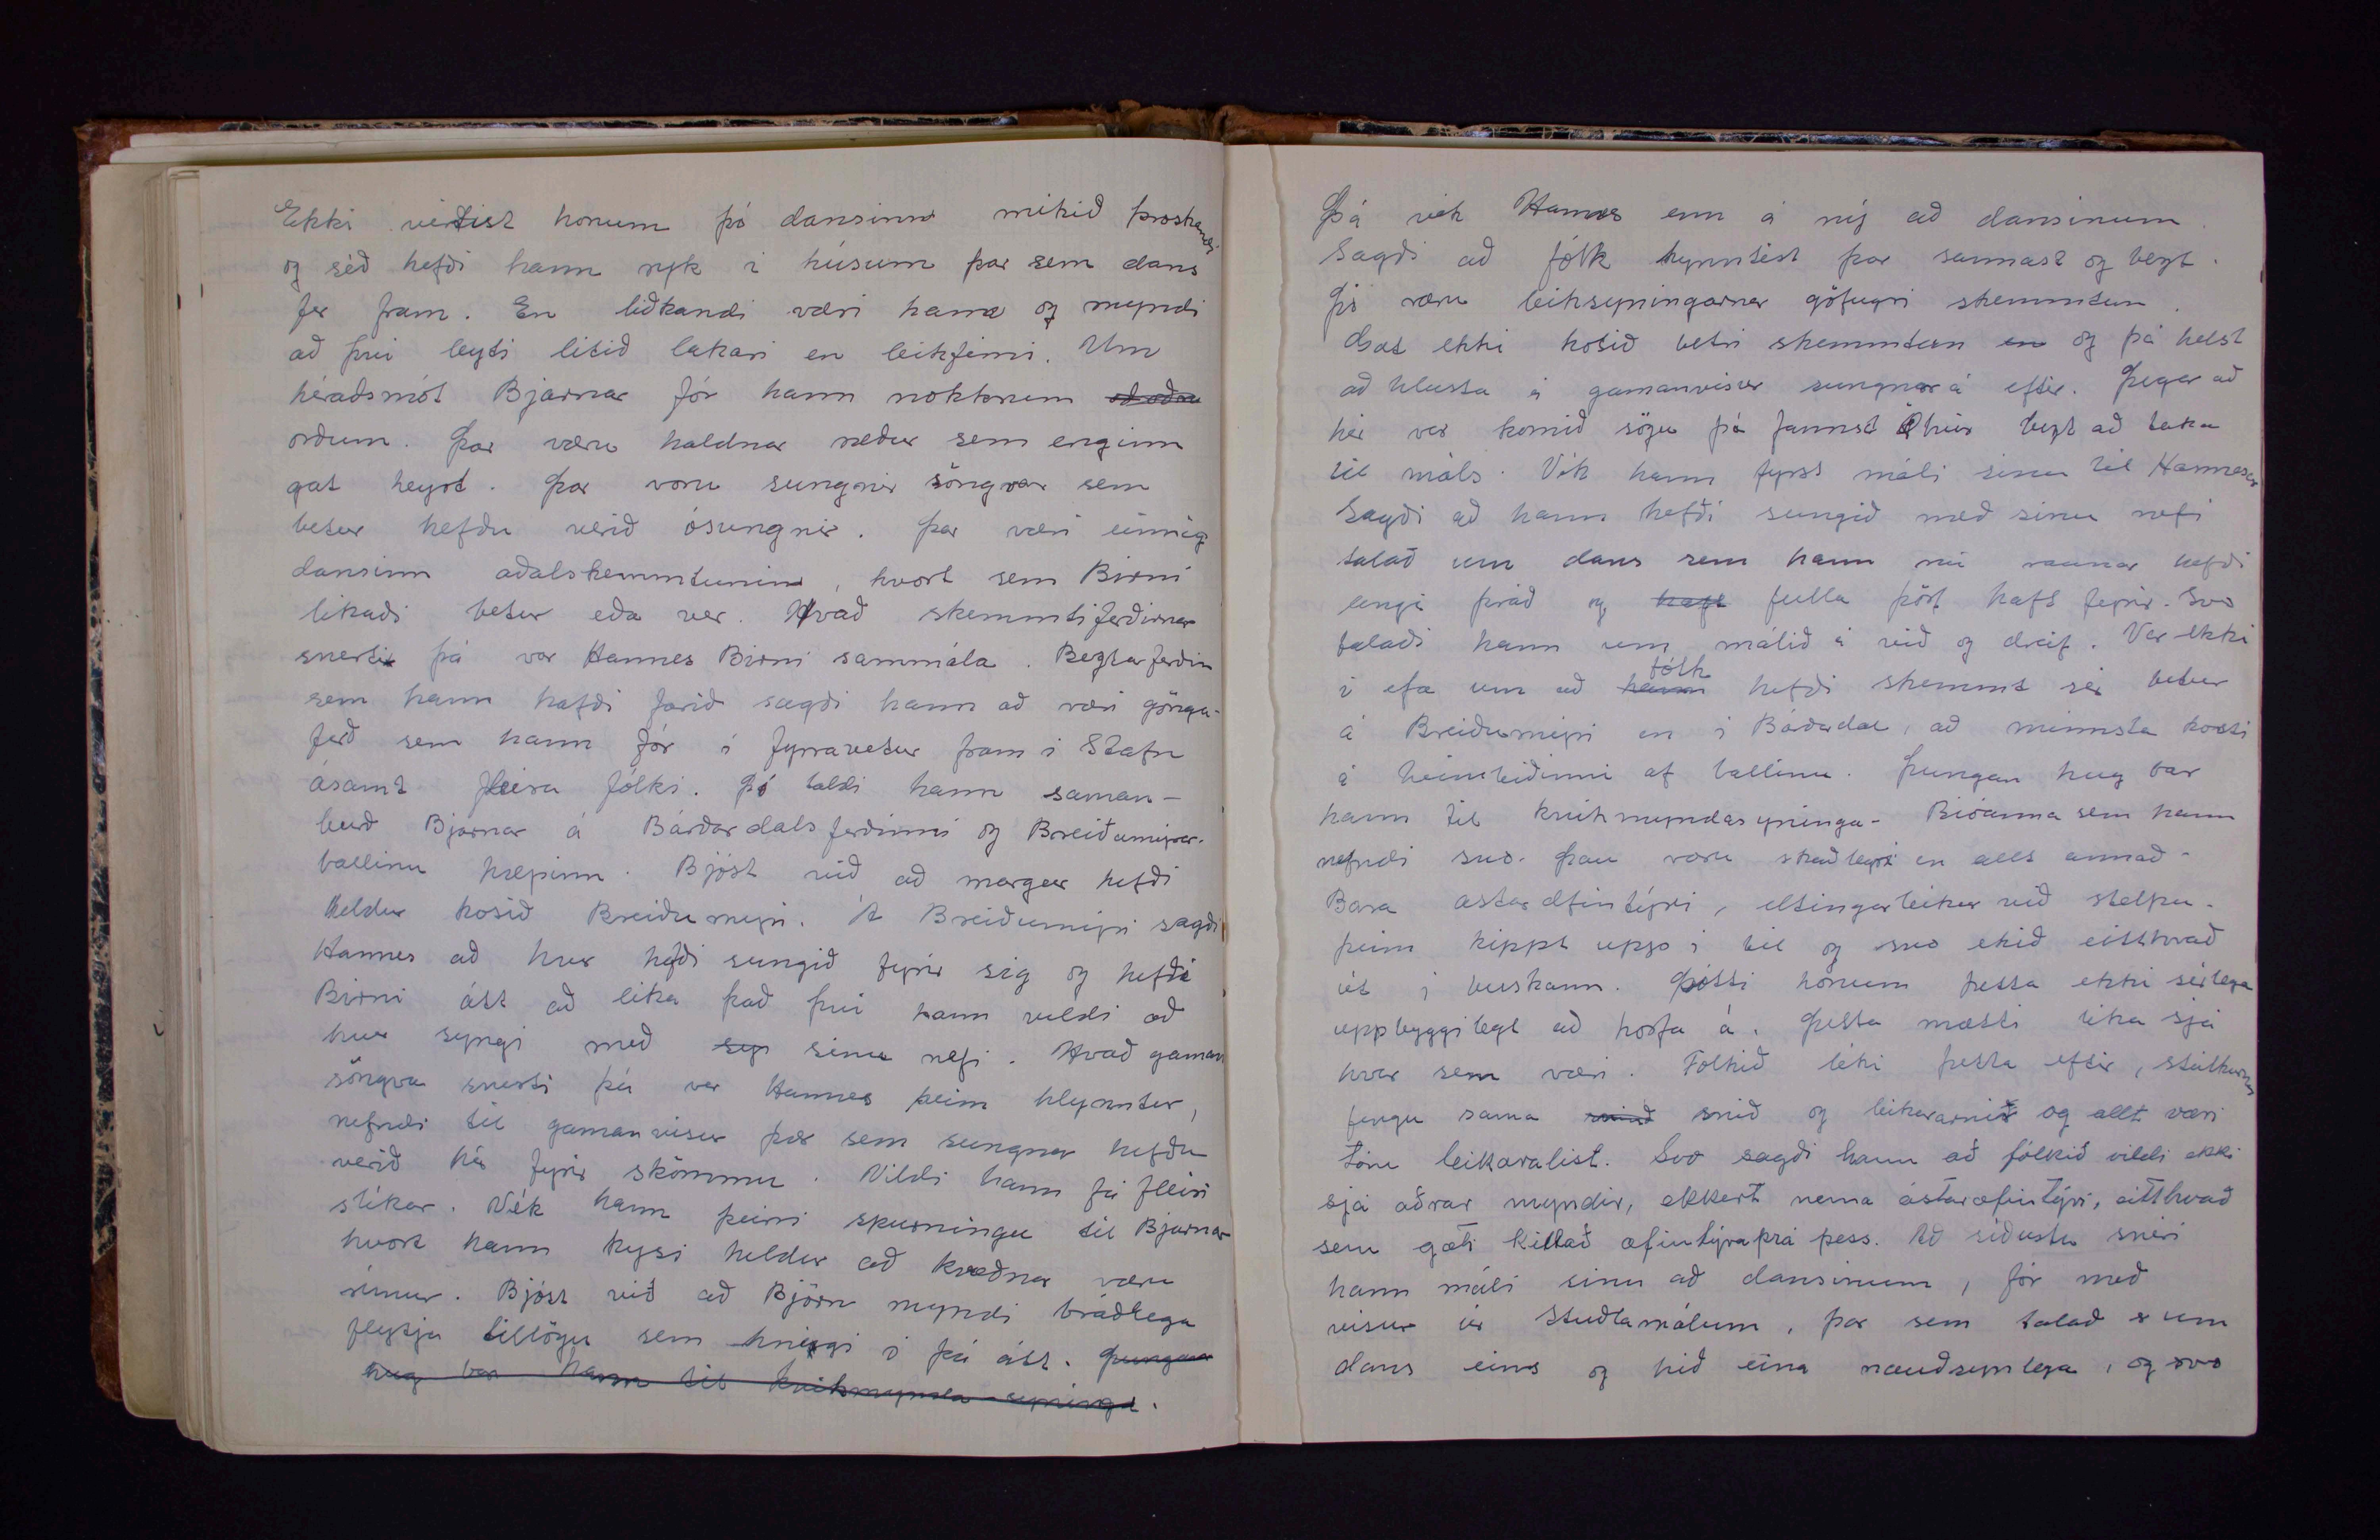 Ekki virtist honum þó dansinn mikið þroskandi
og séð hefði hann ryk í húsum þar sem dans
fer fram. En liðkandi væri hann og myndi
að því leyti lítið lakari en leikfimi. Um
héraðsmót Bjarnar fór hann nokkrum
orðum. Þar væru haldnar ræður sem enginn
gat heyrt. Þar voru sungnir söngvar sem
betur hefðu verið ósungnir. Þar væri einnig
dansinn aðalskemmtunin, hvort sem Birni
líkaði betur eða ver. Hvað skemmtiferðirnar
snerti þá var Hannes Birni sammála. Beztu ferðin
sem hann hafði farið sagði hann að væri göngu-
ferð sem hann fór í fyrravetur fram í Stafn
ásamt fleira fólki. Þó taldi hann saman-
burð Bjarnar á Bárðardalsferðinni og Breiðumýrar-
ballinu hæpinn. Bjóst við að margur hefði
heldur kosið Breiðumýri. Á Breiðumýri sagði
Hannes að hver hefði sungið fyrir sig og hefði
Birni átt að líka það því hann vildi að
hver syngi með syn sínu nefi. Hvað gaman
söngva snerti þá var Hannes þeim hlynntur,
nefndi til gamanvísur þær sem sungnar hefðu
verið hér fyrir skömmu. Vildi hann fá fleiri
slíkar. Vék hann þeirri spurningu til Bjarnar
hvort hann kysi heldur að kveðnar væru
rímur. Bjóst við að Björn myndi bráðlega
flytja tillögu sem hnigi í þá átt. Þungan
hug bar hann til kvikmynda-sýninga.
Þá vék Hannes enn á ný að dansinum.
Sagði að fólk kynntist þar sannast og bezt.
Þó væru leiksýningarnar göfugri skemmtun.
Gat ekki kosið betri skemmtun en og þá helst
að hlusta á gamanvísur sungnar á eftir. Þegar að
hér var komið sögu þá fannst bezt að taka
til máls. Vék hann fyrst máli sínu til Hannesar
Sagði að hann hefði sungið með sínu nefi
talað um dans sem hann nú raunar hefði
lengi þráð og haft fulla þörf haft fyrir. Svo
talaði hann um málið á við og dreif. Var ekki
í efa um að hann fólk hefði skemmt sér betur
á Breiðumýri en í Bárðardal, að minnsta kosti
á heimleiðinni af ballinu. Þungan hug bar
hann til kvikmyndasýninga- Bíóanna sem hann
nefndi svo. Þau væru skaðlegri en allt annað-
Bara ástaræfintýri, eltingarleikur við stelpu-
þeim kippt upp í bíl og svo ekið eitthvað
út í buskann. Þótti honum þetta ekki sérlega
uppbyggilegt að horfa á. Þetta mætti líka sjá
hvar sem væri. Fólkið léki þetta eftir, stúlkurnar
fengju sama snið og leikararnir og allt væri
tóm leikaralist. Svo sagði hann að fólkið vildi ekki
sjá aðrar myndir, ekkert nema ástaræfintýri, eitthvað
sem gæti kitlað æfintýraþrá þess. Að síðustu snéri
hann máli sínu að dansinum, fór með
vísur úr Stuðlamálum, þar sem talað er um
dans eins og hið eina nauðsynlega, og svo